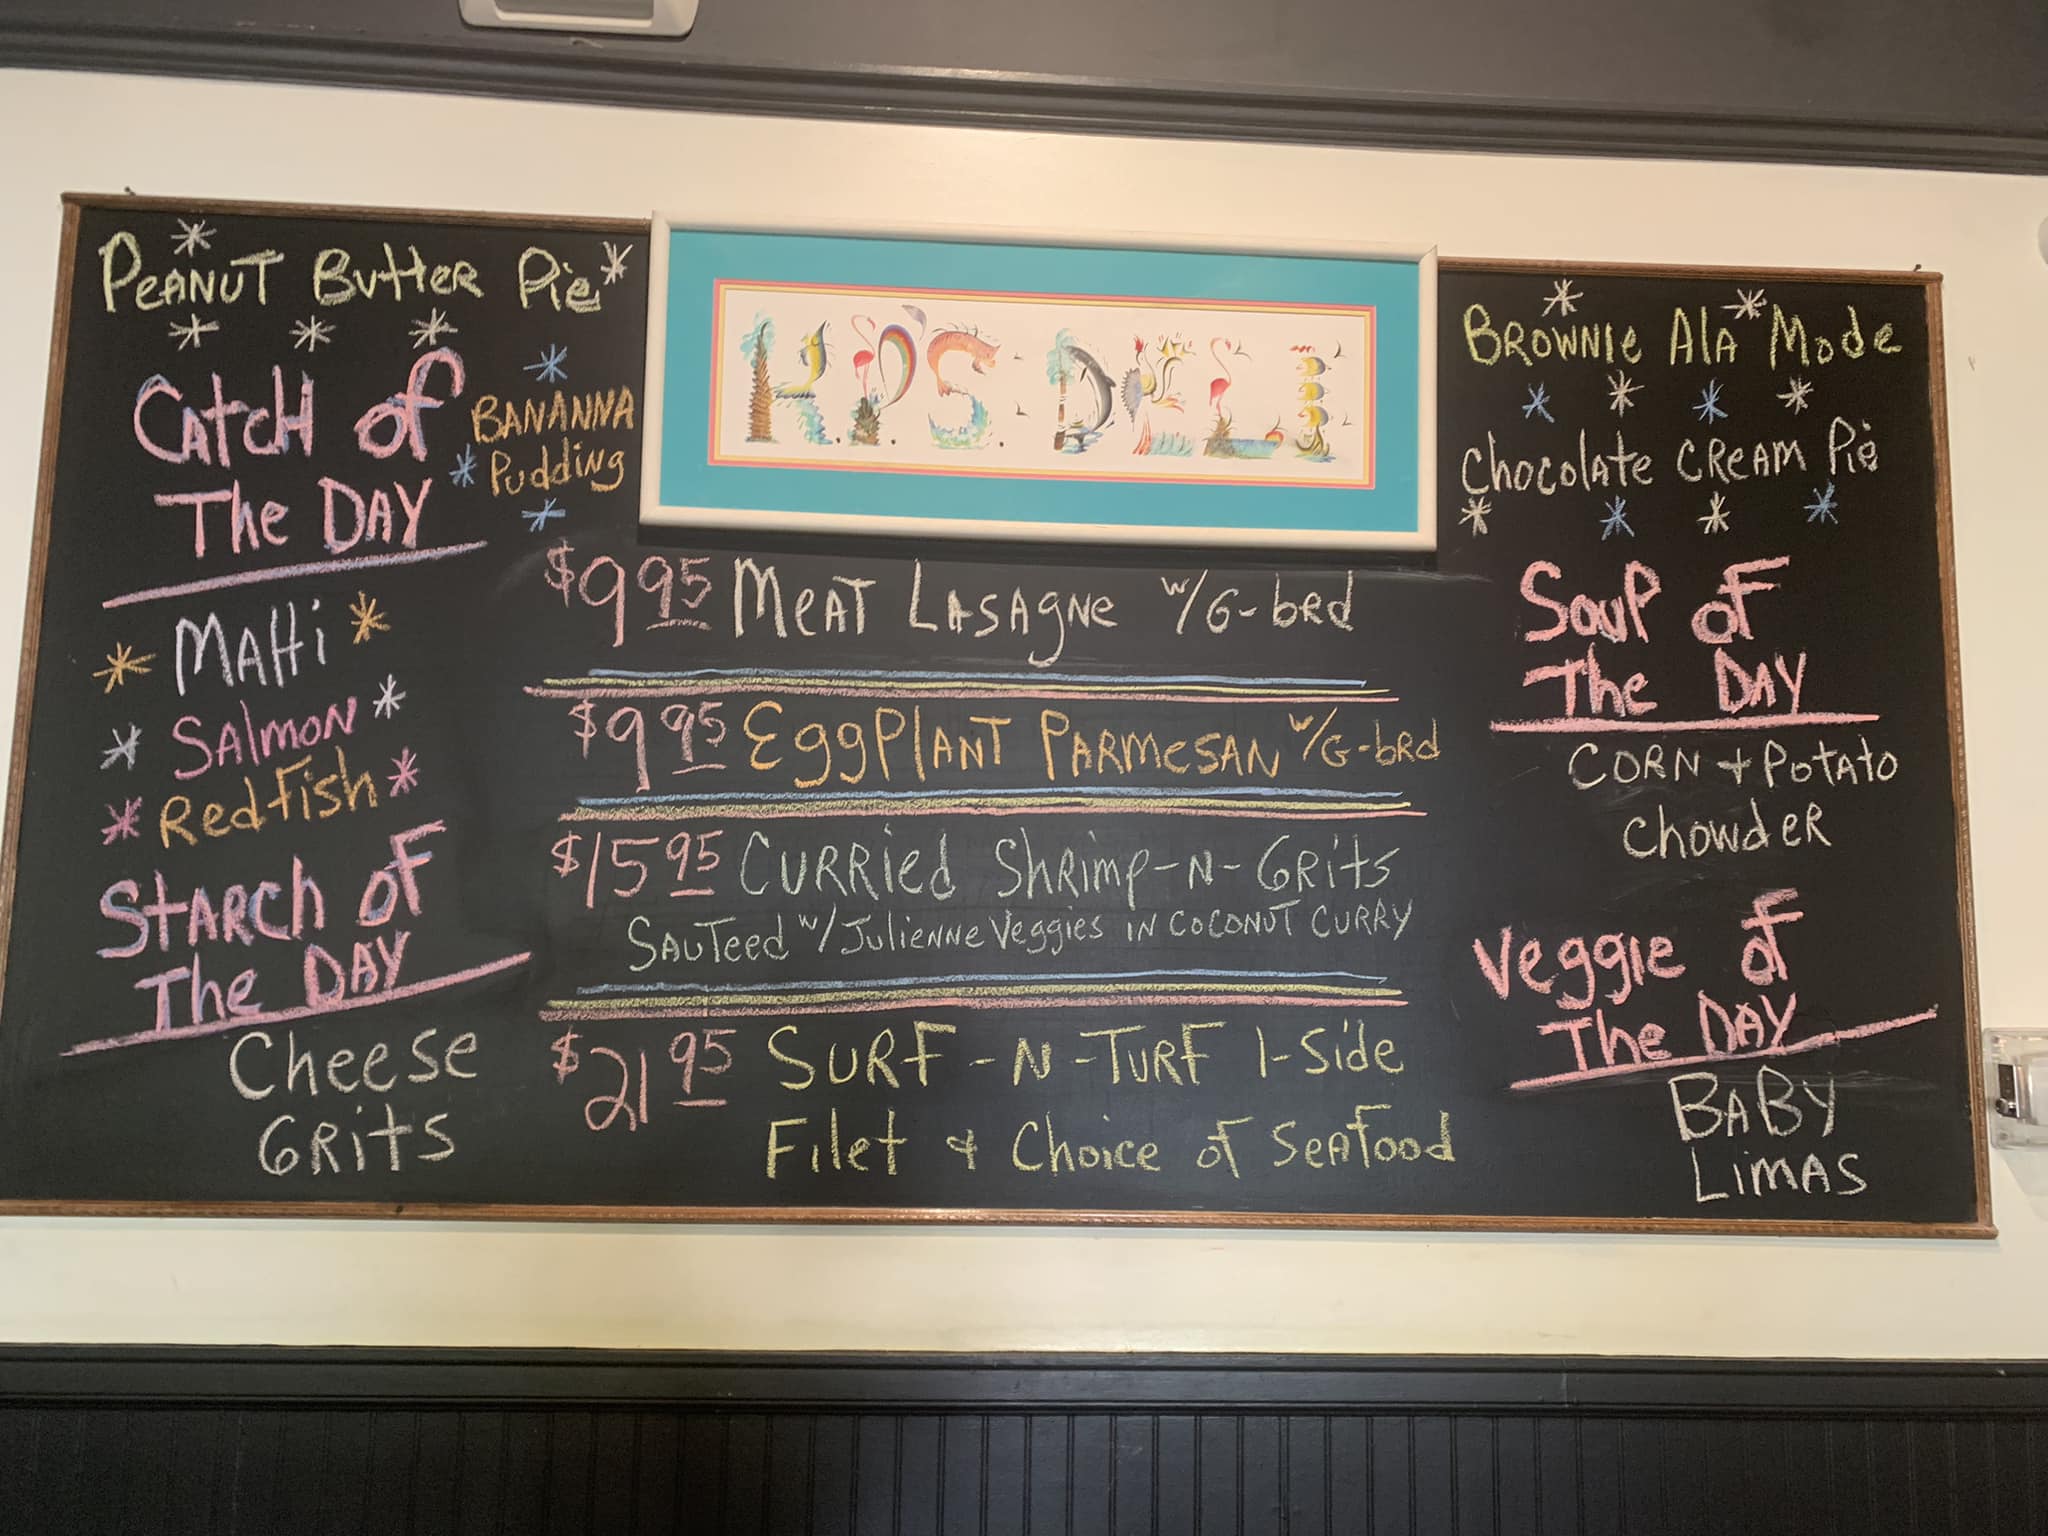 PEANUT ButteR Pie
CAtcH of
The DAY
BANANNA
Pudding
MAHi
SAlmoN
RedFish
STARch oF
The DAY
Cheese
GRitS
K.P.'S. DELI
$9 95 MeAT LASAgNe w/G-bRd
$9 95 EggPlANT PARmeSAN w/G-bRd
$15 95 CURRied ShRimp-N-GRits
SAUTeed w/JulieNNe Veggies IN COCONUT CURRY
$21 95 SURF-N-TURF 1-Side
Filet & Choice of SeAfood
BROWNIe AlA Mode
ChocolAte CReAM Pie
SouP oF
The DAY
CORN + POTATO
ChowdeR
Veggie oF
The DAY
BABY
LimAS